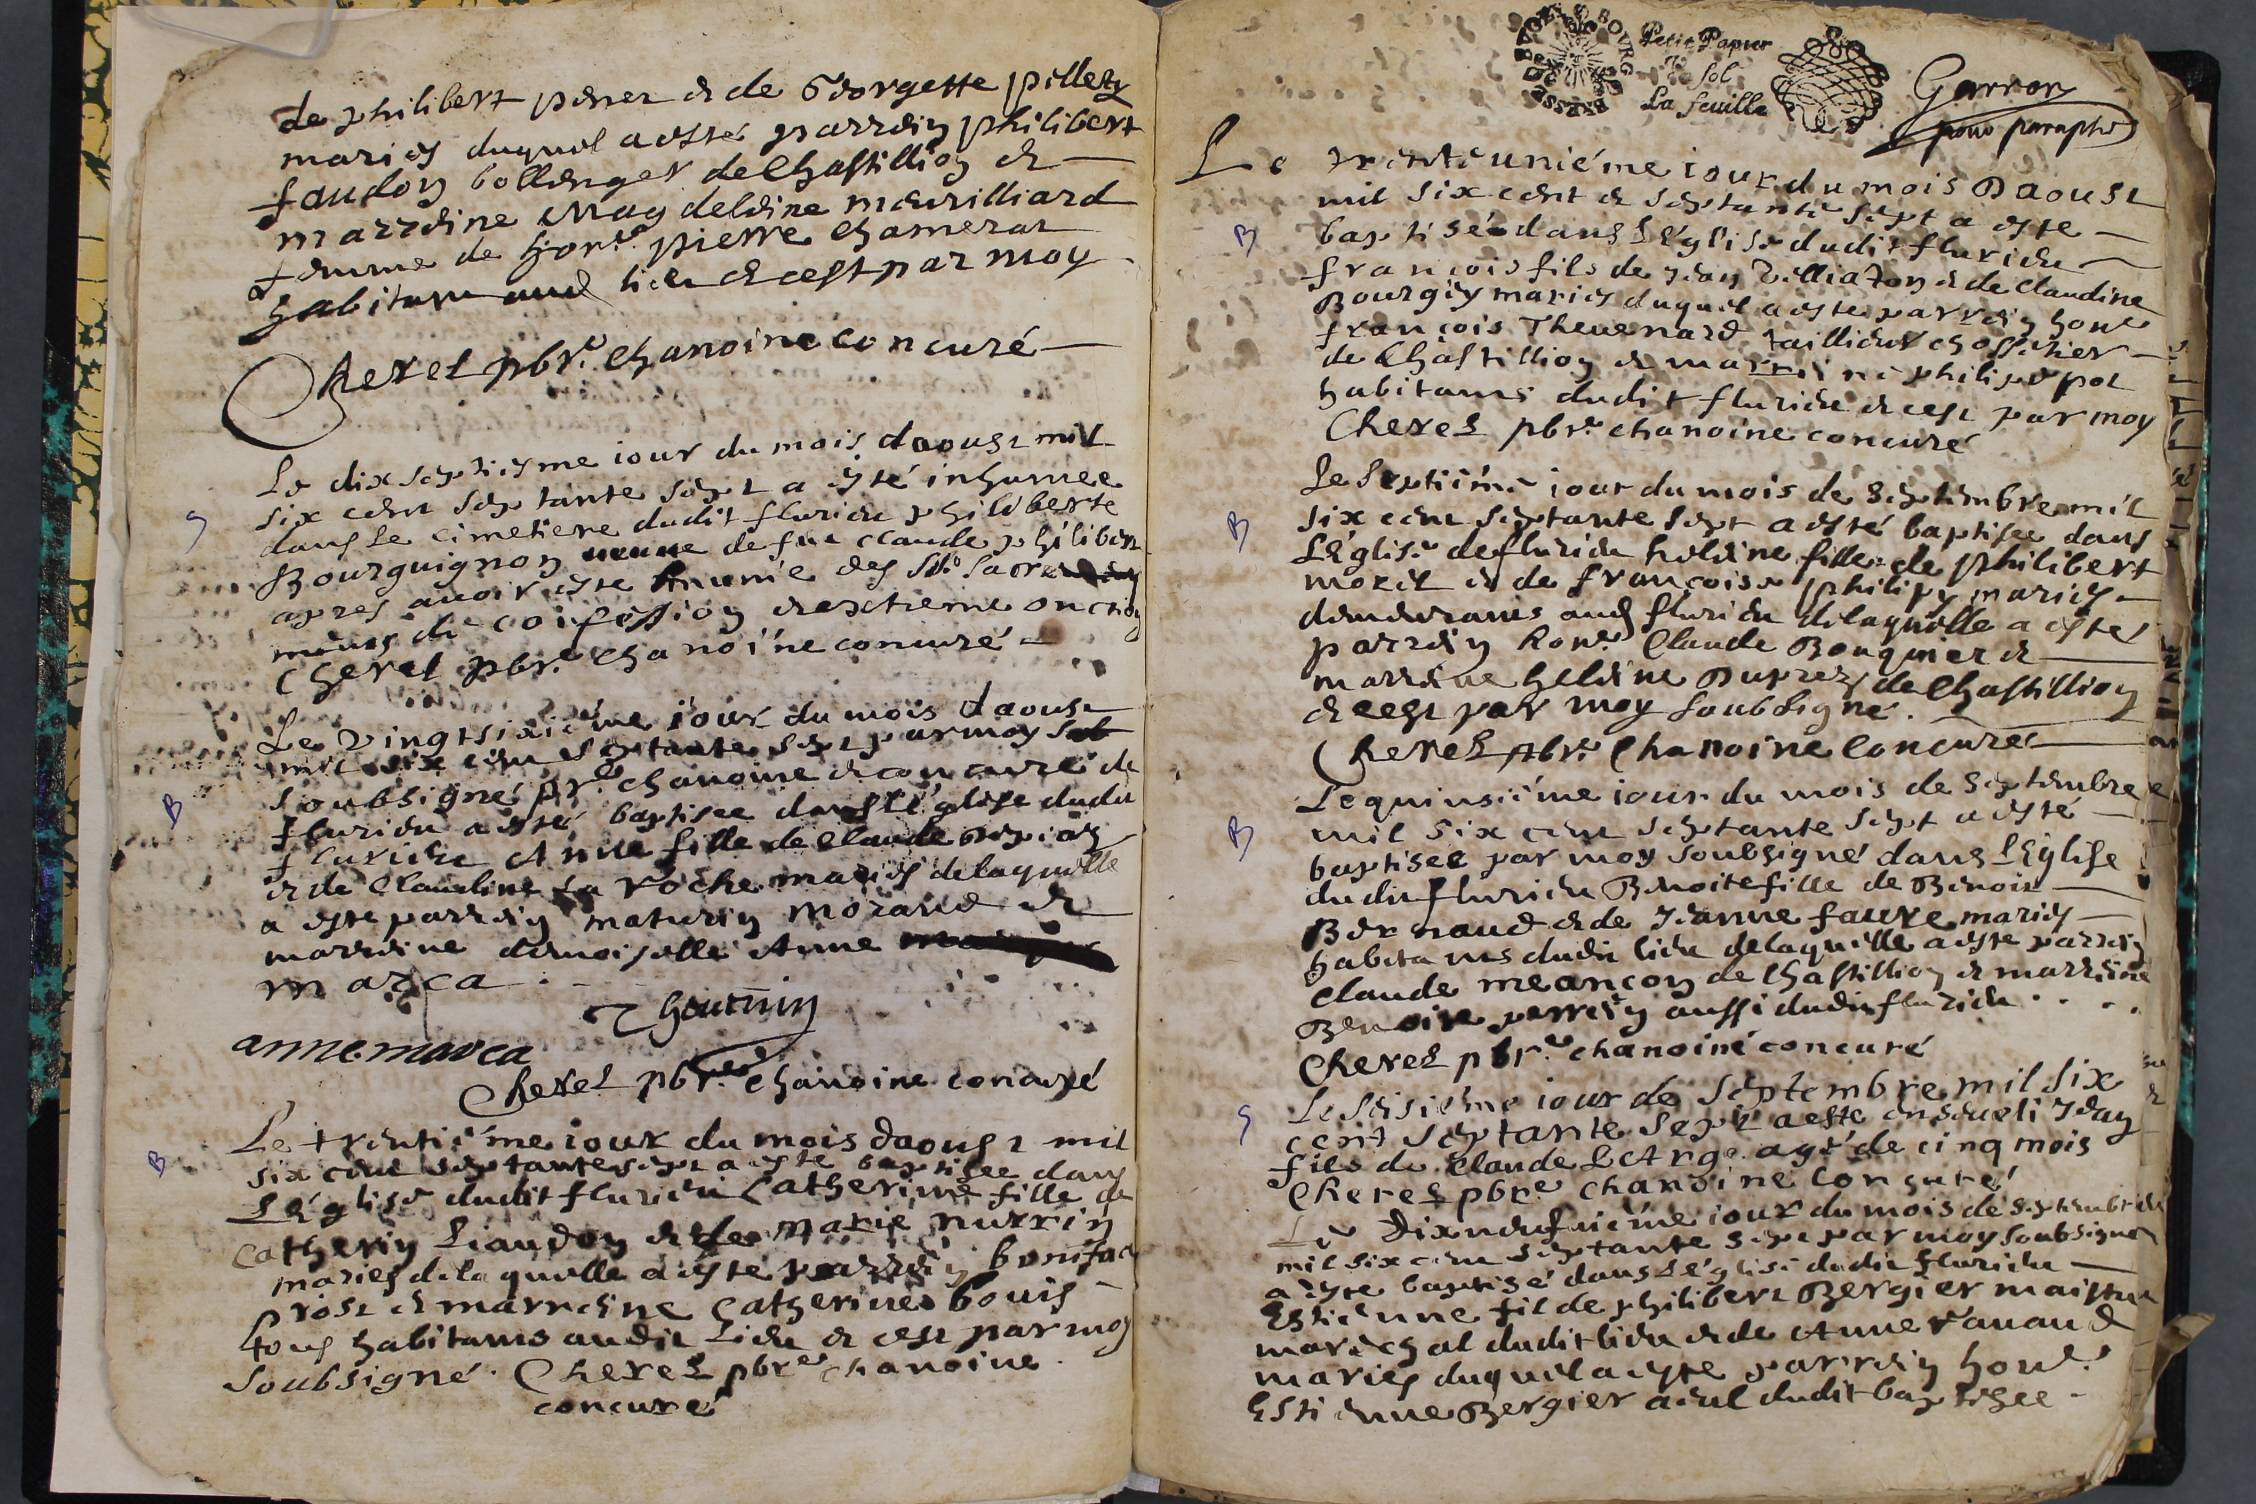 de philibert perret & de Georgette pillet
maries duquel a esté parrein philibert
faudon bollenger de Chastillion &
marreine Magdeleine meurilliard
femme de hon.e pierre Chamerat
habitans aud lieu & cest par moy
Cheret pbr.e Chanoine concuré
Le dix septiesme iour du mois daoust mil
six cent septante sept a esté inhumee
dans le cimetiere dudit flurieu philiberte
Bourguignon veuue de feu claude philibert
apres auoir este munie des Sts. Sacre
ments de confession & extreme onction
Cheret pbr.e Chanoine concuré
Le vingtsixiéme iour du mois daoust
mil six cent septante sept par moy
soubsigné pr.e chanoine & concuré de
flurieu a esté baptisee dans léglise dudit
flurieu Anne fille de Claude
& de Claudine La roche maries de laquelle
a este parrein maturin morand &
marreine demoiselle Anne
marca
anne marca
Cheret pbr.e Chanoine concuré
Le trentiéme iour du mois daoust mil
six cent septante sept a este baptisee dans
LEglise dudit flurieu Catherine fille de
Catherin Liaudon & de Marie nurrin
maries de la quelle a esté parrein boniface
prost & marreine Catherine bouis
tous habitans audit Lieu & cest par moy
soubsigné. Cheret pbr.e chanoine
concuré
BOURG
BRESSE
Petit Papier
sol
La feuille
Garron
pour paraphe
Le trenteuniéme iour du mois Daoust
mil six cent & septante sept a este
baptisé dans LEglise dudit flurieu
françois fils de Jean & de Claudine
Bourgey maries duquel a este parrein hon.e
françois Thevenard taillieur chossetier
de Chastillion & marreine philipe pot
habitans dudit flurieu & cest par moy
Cheret pbr.e chanoine concuré
Le septiéme iour du mois de Septembre mil
six cent septante sept a esté baptisee dans
LEglise de flurieu heleine fille de philibert
morel & de françoise philipy maries
demeurans aud flurieu de laquelle a esté
parrein hon.e Claude Bouquier &
marreine heleine Duprez de Chastillion
& cest par moy soubsigné.
Cheret pbr.e Chanoine Concuré
Le quinsiéme iour du mois de Septembre
mil six cent septante sept a esté
baptisee par moy soubsigné dans LEglise
dudit flurieu Benoite fille de Benoit
Bernaud & de Jeanne faure maries
habitans dudit lieu de laquelle a este parrein
Claude meançon de Chastillion & marreine
Benoite perrein aussi dudit flurieu
Cheret pbr.e chanoine concuré
Le seisiéme iour de Septembre mil six
cent septante sept a este enseueli Jean
fils de Claude LArge agé de cinq mois
Cheret pbr.e Chanoine Concuré
Le Dixneufuiéme iour du mois de septembre
mil six cent septante sept par moy soubsigné
a este baptisé dans LEglise dudit flurieu
Estienne fil de philibert Bergier maistre
marechal dudit lieu & de Anne rauaud
maries duquel a este parrein hon.e
Estienne Bergier aieul dudit baptisee